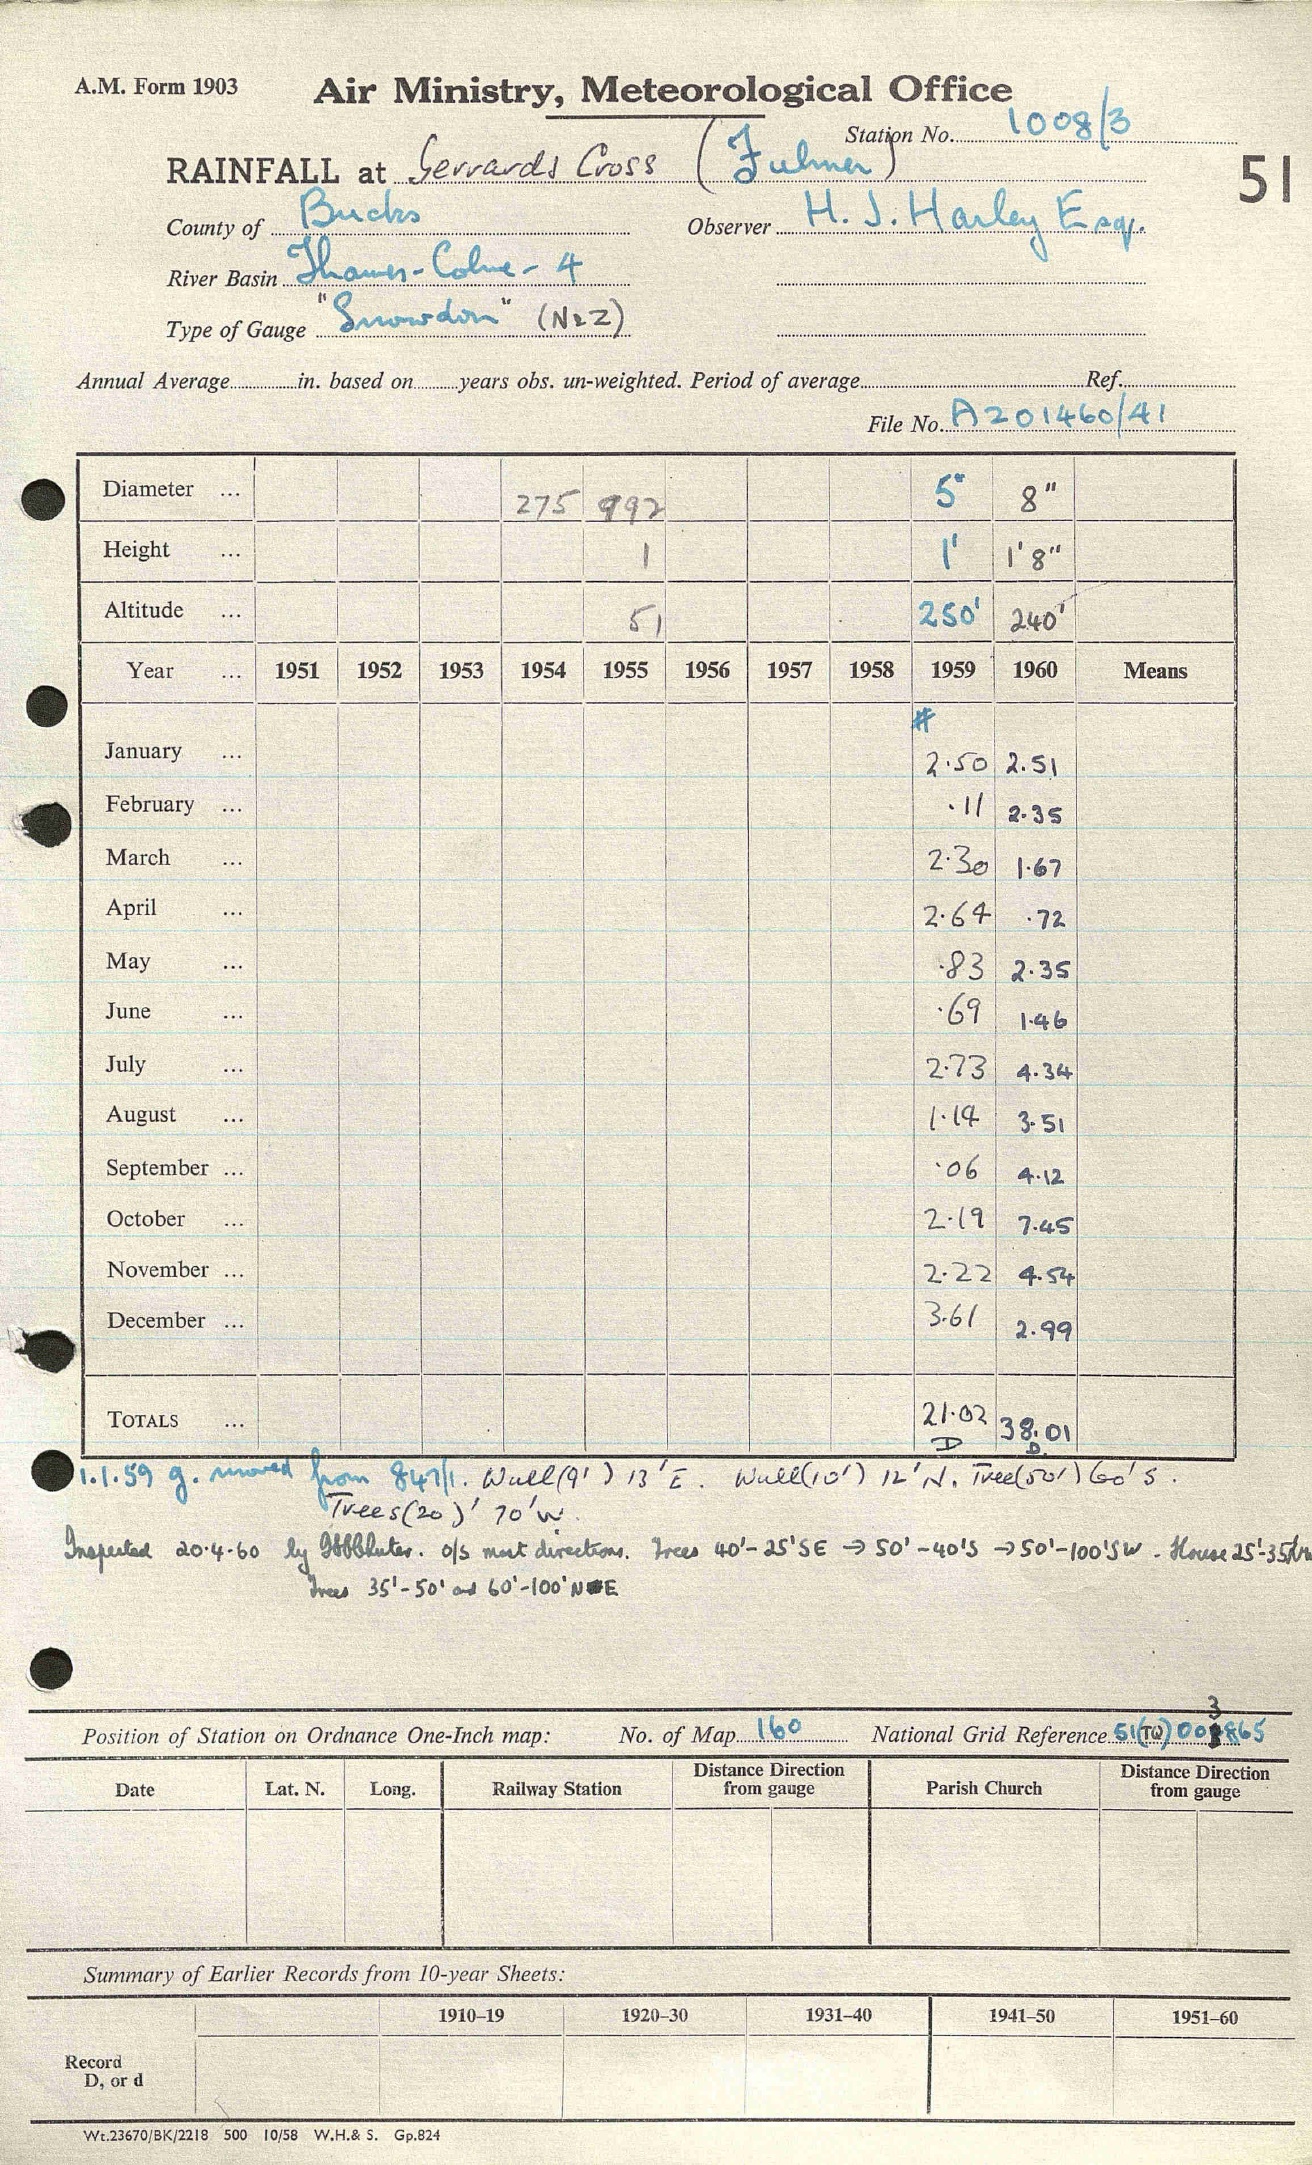 A.M. Form 1903 Air Ministry, Meteorological Office
Station No. 1008/3
RAINFALL at Gerrards Cross (Fulmer)
51
County of Bucks Observer H. J. Harley Esq.
River Basin Thames-Colne-4
Type of Gauge "Snowdon" (N22)
Annual Average in. based on years obs. un-weighted. Period of average Ref.
File No. A201460/41
Diameter ... 275 992 5" 8"
Height ... 1 1' 1'8"
Altitude ... 51 250' 240'
Year ... 1951 1952 1953 1954 1955 1956 1957 1958 1959 1960 Means
#
January ... 2.50 2.51
February ... .11 2.35
March ... 2.30 1.67
April ... 2.64 .72
May ... .83 2.35
June ... .69 1.46
July ... 2.73 4.34
August ... 1.14 3.51
September ... .06 4.12
October ... 2.19 7.45
November ... 2.22 4.54
December ... 3.61 2.99
TOTALS ... 21.02 38.01
D D.
1.1.59 g. moved from 847/1. Wall(9') 13'E. Wall(10') 12'N. Tree(50') 60'S.
Trees(20)' 70'W.
Inspected 20.4.60 by o/s most directions. Trees 40'-25'SE → 50'-40'S → 50'-100'SW. House 25'-35'
Trees 35'-50' and 60'-100' NE
3
Position of Station on Ordnance One-Inch map: No. of Map 160 National Grid Reference 51(TQ) 00 865
Date Lat. N. Long. Railway Station Distance Direction from gauge Parish Church Distance Direction from gauge
Summary of Earlier Records from 10-year Sheets:
1910–19 1920–30 1931–40 1941–50 1951–60
Record
D, or d
Wt.23670/BK/2218 500 10/58 W.H.& S. Gp.824